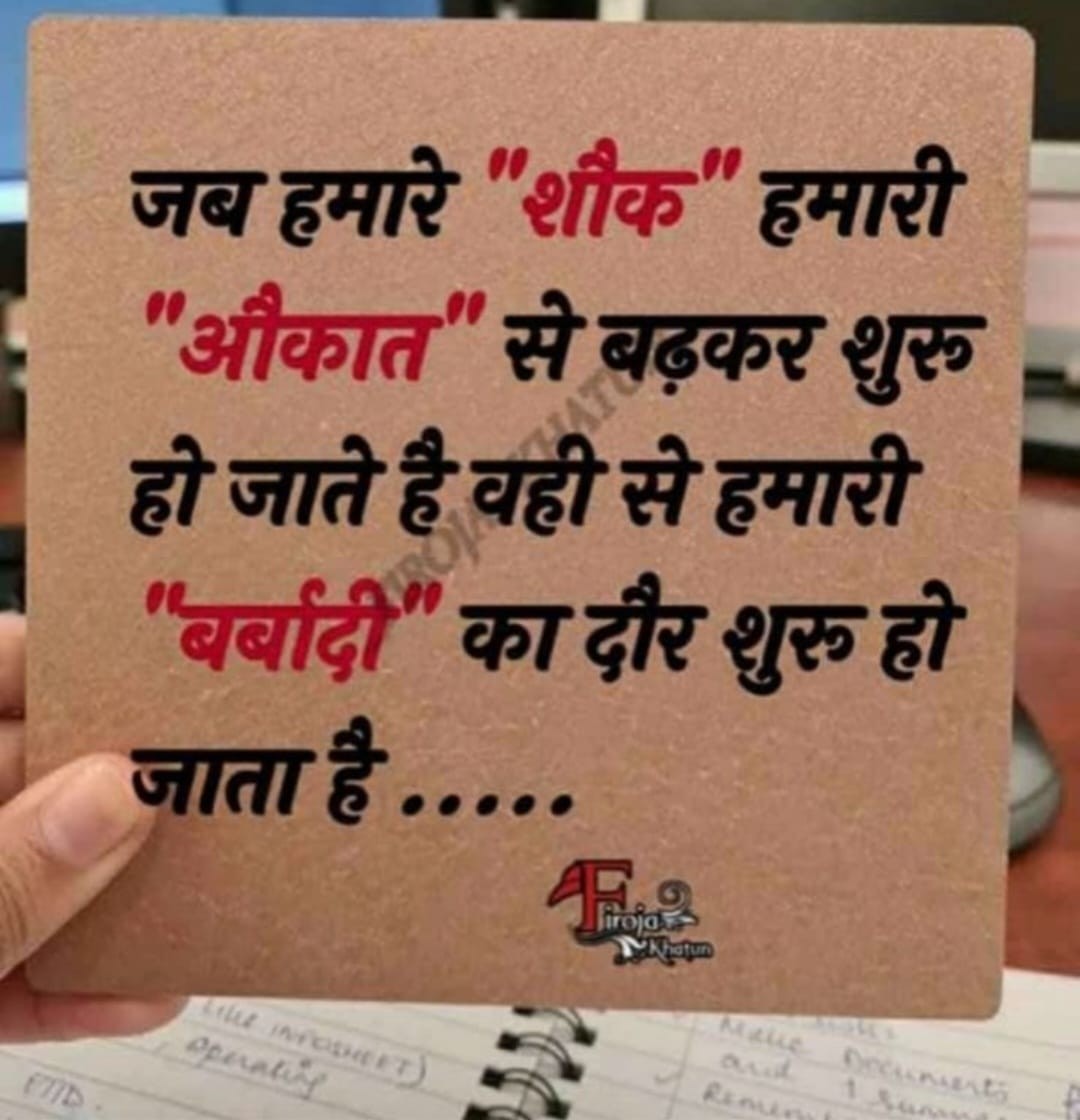 जब हमारे "शौक" हमारी
"औकात" से बढ़कर शुरू
हो जाते है वही से हमारी
"बर्बादी" का दौर शुरू हो
जाता है .....
Firoja
Khatun
FIROJA KHATUN
LIKE INFOSHEET)
operating
Documents
and 1